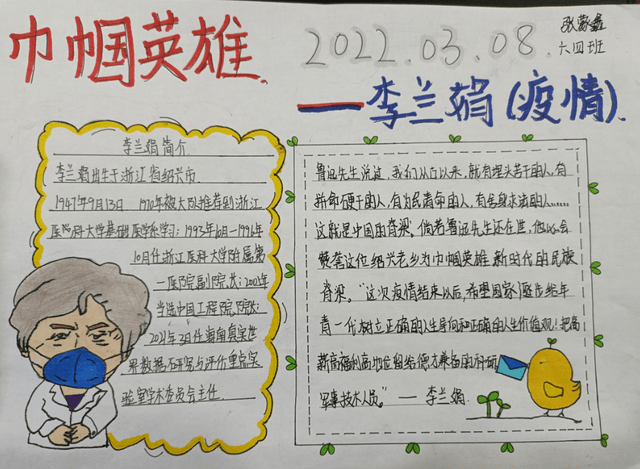 巾帼英雄
2022.03.08.
六四班
——李兰娟(疫情)
李兰娟简介
李兰娟出生于浙江省绍兴市.
1947年9月13日 1970年被大队推荐到浙江
医科大学基础医学系学习:1993年10月—1996年
10月任浙江医科大学附属第
一医院副院长:2005年
当选中国工程院院士:
2021年3月任海南真实世
界数据研究与评价重点实
验室学术委员会主任.
鲁迅先生说过,我们从古以来,就有埋头苦干的人,有
拼命硬干的人,有为民请命的人,有舍身求法的人......
这就是中国的脊梁。倘若鲁迅先生还在世,他必会
赞誉这位绍兴老乡为巾帼英雄 新时代的民族
脊梁。"这次疫情结束以后,希望国家逐步给年
青一代树立正确的人生导向和正确的人生价值观!把高
薪高福利高地位留给德才兼备的科研
军事技术人员。"——李兰娟